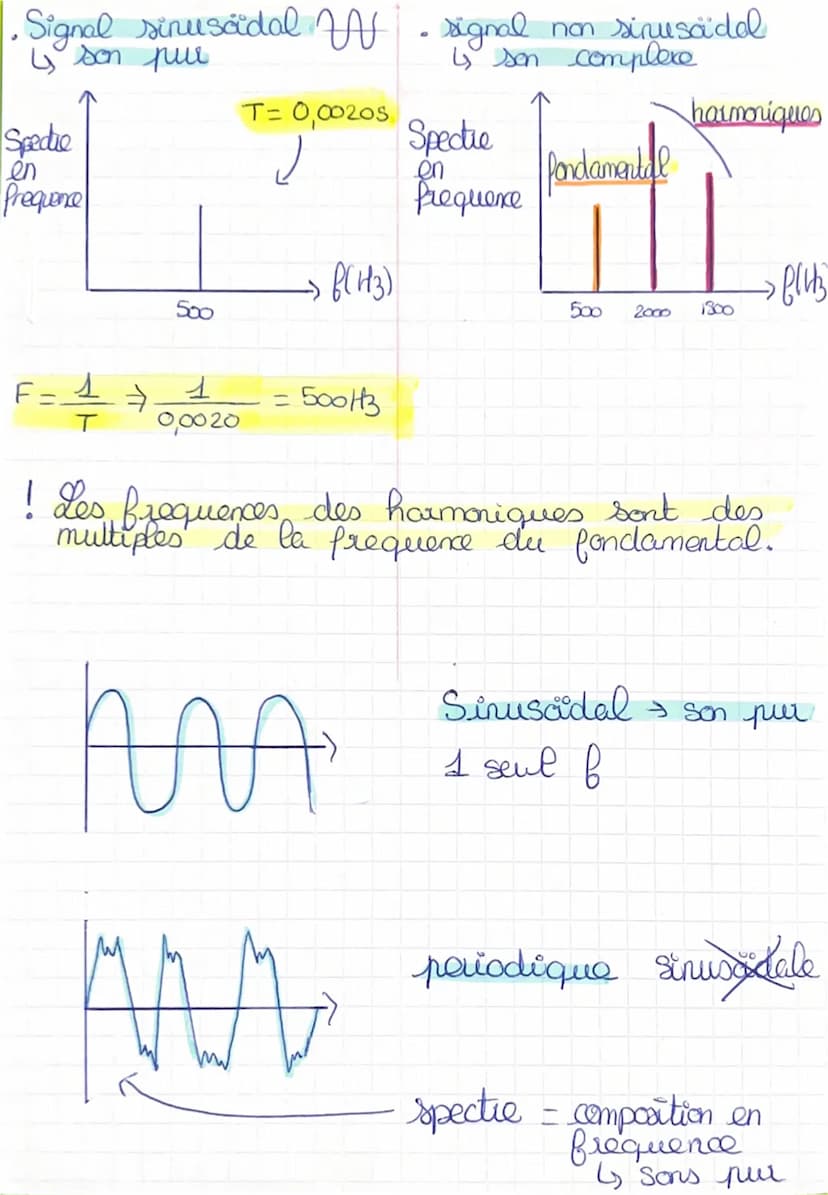 . Signal sinusoïdal
↳ son pur
. signal non sinusoïdal
↳ son complexe
T= 0,0020s
Spectre
en
frequence
f(Hz)
500
harmoniques
fondamental
Spectre
en
frequence
f(Hz
500 2000 1500
F = 1/T ⇒ 1/0,0020 = 500Hz
! Les frequences des harmoniques sont des
multiples de la frequence du fondamental.
Sinusoïdal → son pur
1 seul f
periodique sinusoïdale
spectre = composition en
frequence
↳ sons pur